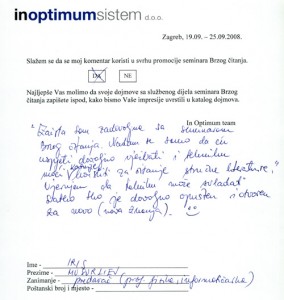 inoptimumsistem d.o.o.
Zagreb, 19.09. – 25.09.2008.
Slažem se da se moj komentar koristi u svrhu promocije seminara Brzog čitanja.
DA NE
Najljepše Vas molimo da svoje dojmove sa službenog dijela seminara Brzog
čitanja zapišete ispod, kako bismo Vaše impresije uvrstili u katalog dojmova.
In Optimum team
"Zaista sam zadovoljna sa seminarom
Brzog čitanja. Nadam se samo da ću
uspjeti dovoljno vježbati i tehniku
moći koristiti za čitanje stručne literature.
Vjerujem da tehniku može svladati
svatko tko je dovoljno opušten i otvoren
za novo (nova znanja)."
Ime - IRIS
Prezime -
Zanimanje - predavač (prof. fizike, informatičarka)
Poštanski broj i mjesto -